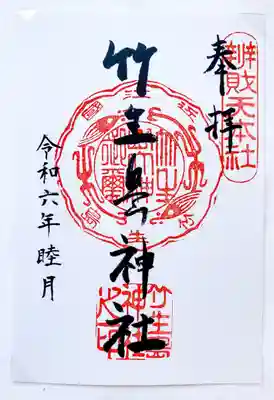 奉拝
辨財天本社
竹生島神社
令和六年睦月
竹生島
神社
之印